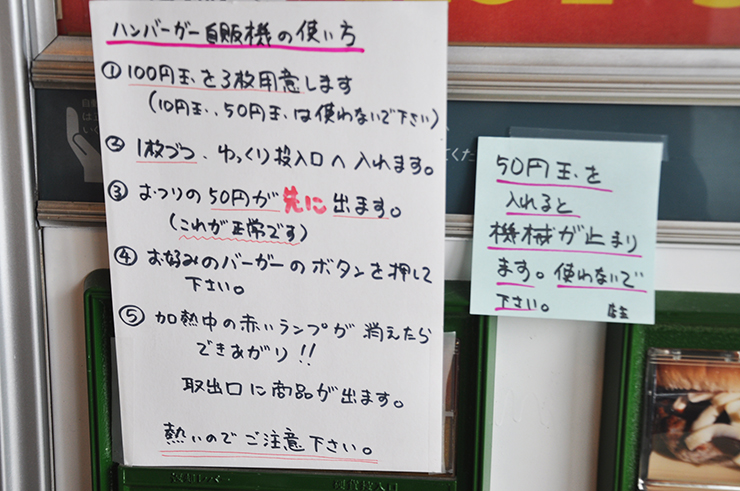 ハンバーガー自販機の使い方
① 100円玉を3枚用意します
(10円玉、50円玉は使わないで下さい)
② 1枚づつ、ゆっくり投入口へ入れます。
③ おつりの50円が先に出ます。
(これが正常です)
④ お好みのバーガーのボタンを押して
下さい。
⑤ 加熱中の赤いランプが消えたら
できあがり!!
取出口に商品が出ます。
熱いのでご注意下さい。
50円玉を
入れると
機械が止まり
ます。使わないで
下さい。 店主